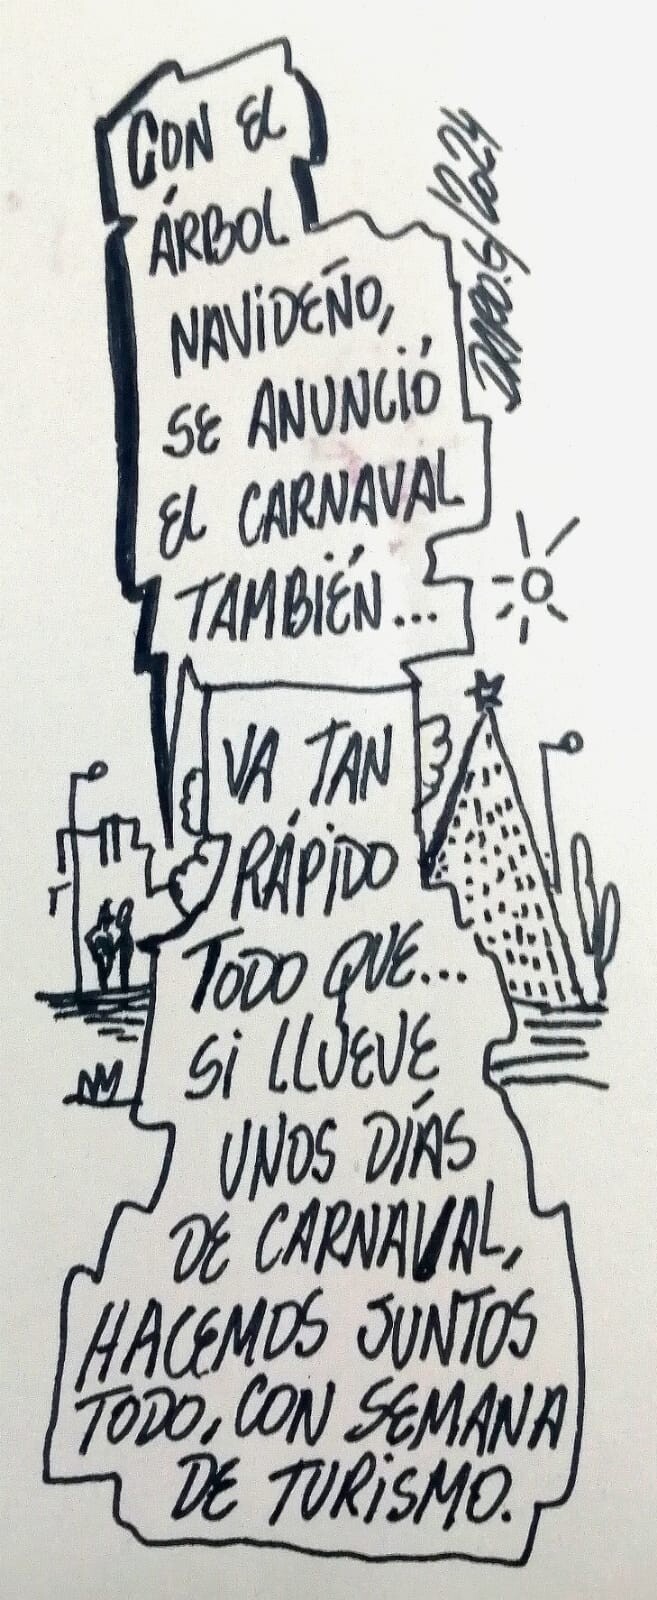 CON EL
ÁRBOL
NAViDEÑO,
SE ANUNCIÓ
EL CARNAVAL
TAMBIÉN...
VA TAN
RÁPiDO
TODO QUE...
Si LLUEVE
UNOS DÍAS
DE CARNAVAL,
HACEMOS JUNTOS
TODO, CON SEMANA
DE TURiSMO.
/2024